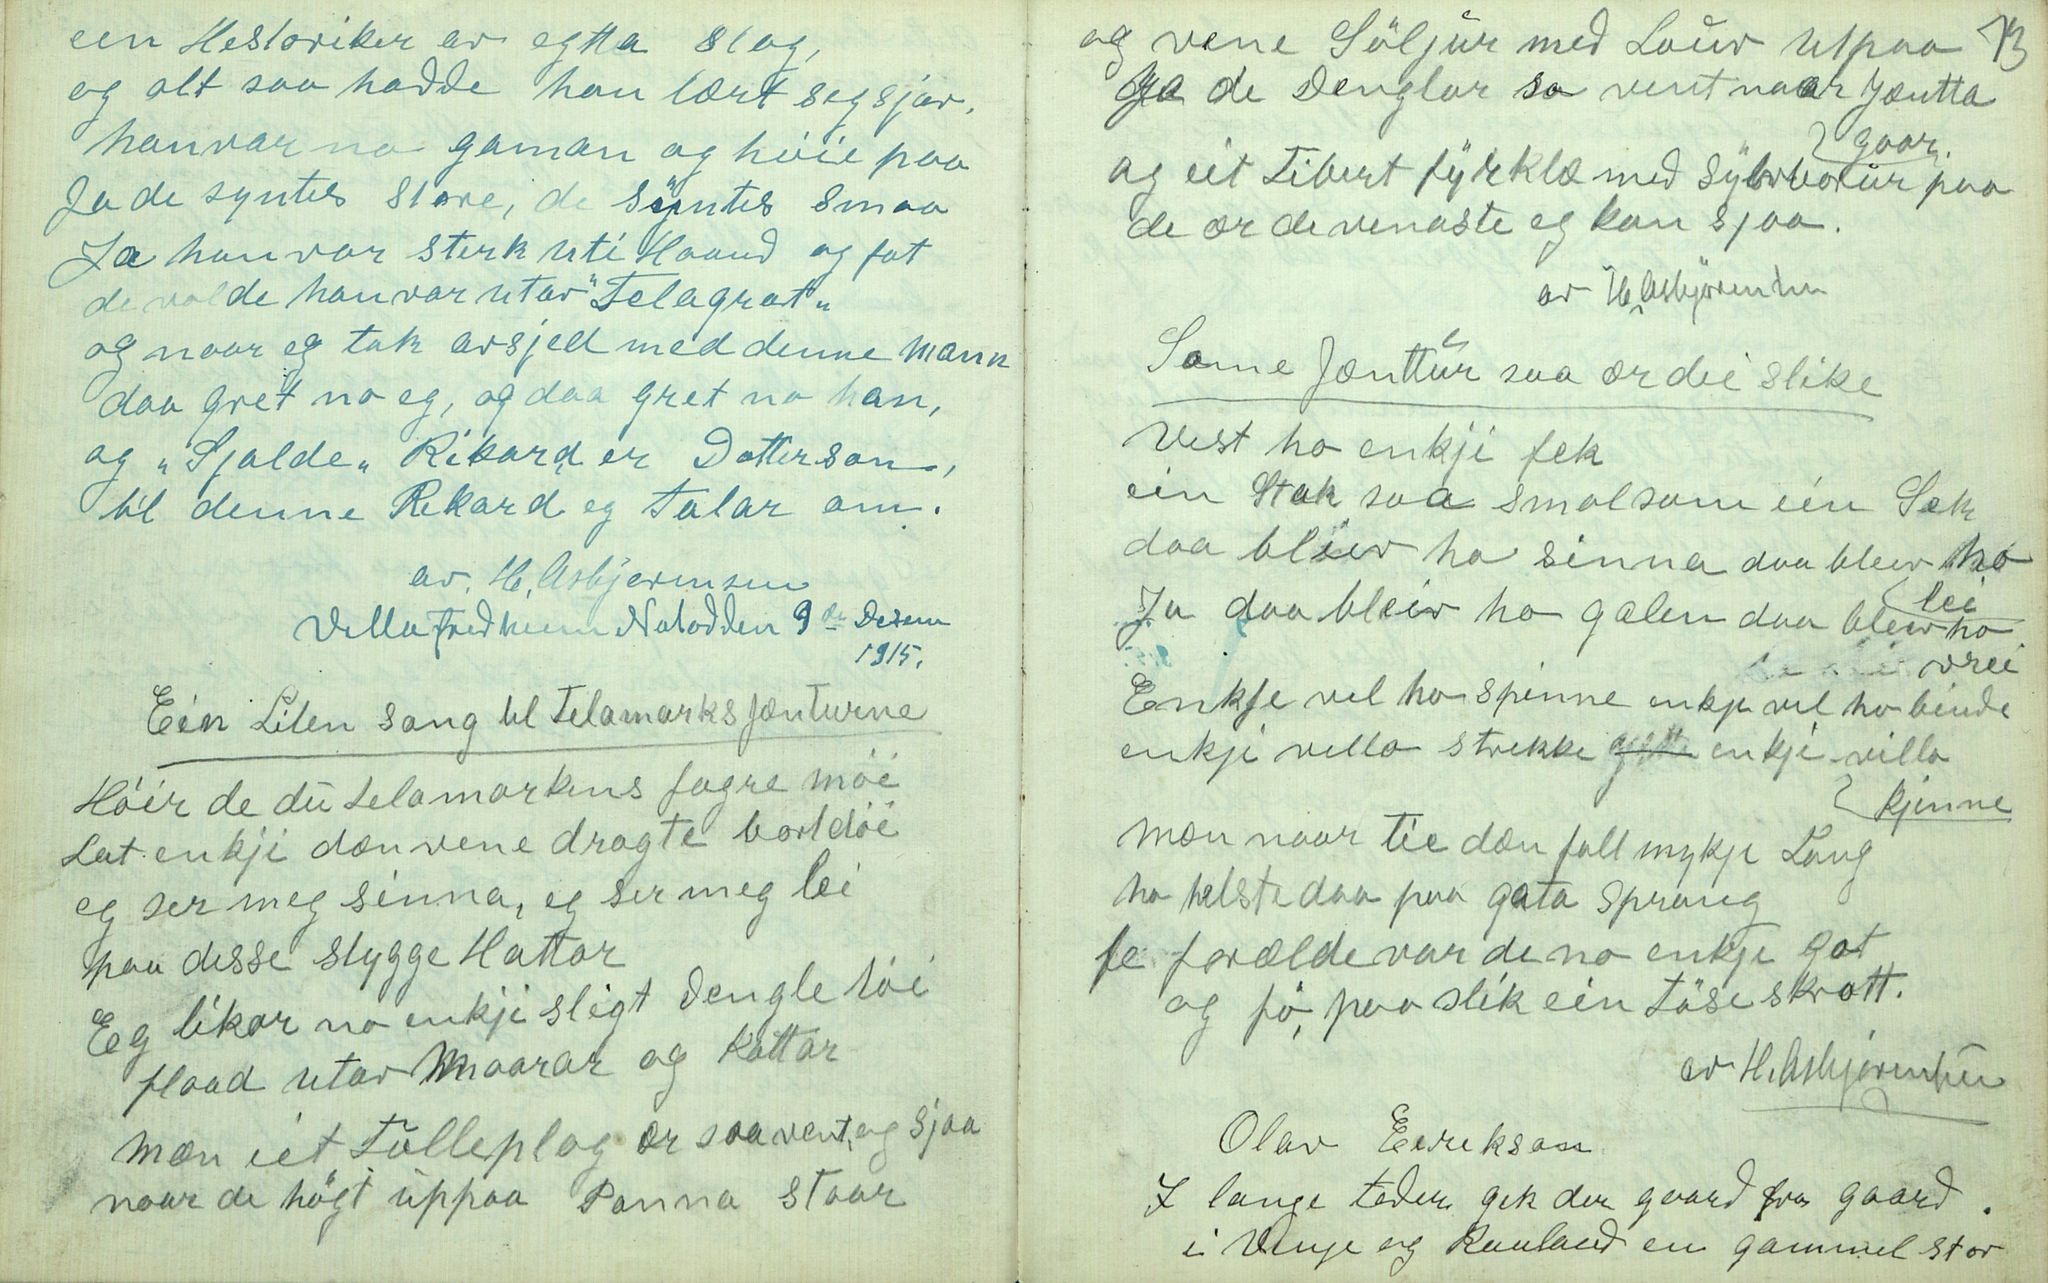 een Hestoriker av egtta slag,
og alt saa hadde han lært seg sjøv.
han var no gaman og höie paa
Ja de syntes store, de syntes smaa
Ja han var sterk uti Haand og fat
de valde han var utav "Telagrat"
og naar eg tok avsjed med denne Mann
daa gret no eg, og daa gret no han,
og "Sjalde" Rikard er Dotterson,
til denne Rikard eg talar om.
av. H. Asbjørensen
Villa Fredheim Notodden 9de Desem
1915.
Ein Liten sang til Telamarksjænturne
Höir de dü telamarkens fagre möi
Lat enkji dæn vene dragte bortdöi
eg ser meg sinna, eg ser meg lei
paa desse stygge Hattar
Eg likar no enkji sligt dengle töi
flaad utav Maarar og Kattar
Mæn eit Tülleplag ær saa vent og sjaa
naar de högt üppaa Panna staar
og vene Söljür med Laüv utpaa
13
Ja de Denglar so vent naar Jæntta
gaar.
og eit Tibert fyrklæ med Sylvborür paa
de ær de venaste eg kan sjaa.
av H. Asbjörensen
Some Jænttür saa ær dei slike
Vist ho enkji fek
ein Stak saa smal som ein Sek
daa bleiv ho sinna daa bleiv ho
lei
Ja daa bleiv ho galen daa bleiv ho
vrei
Enkje vil ho spinne enkje vil ho binde
enkji villa strikke enkji villa
kjinne
Mæn naar tie dæn fall mykje Lang
ho helste daa paa gata sprang
fe forælde var de no enkje got
og fö, paa slik ein töseskrott.
av H. Asbjörensen
Olav Eirikson
I lange tider gik der gaard fra gaard.
i Vinje og Rauland en gammel stor